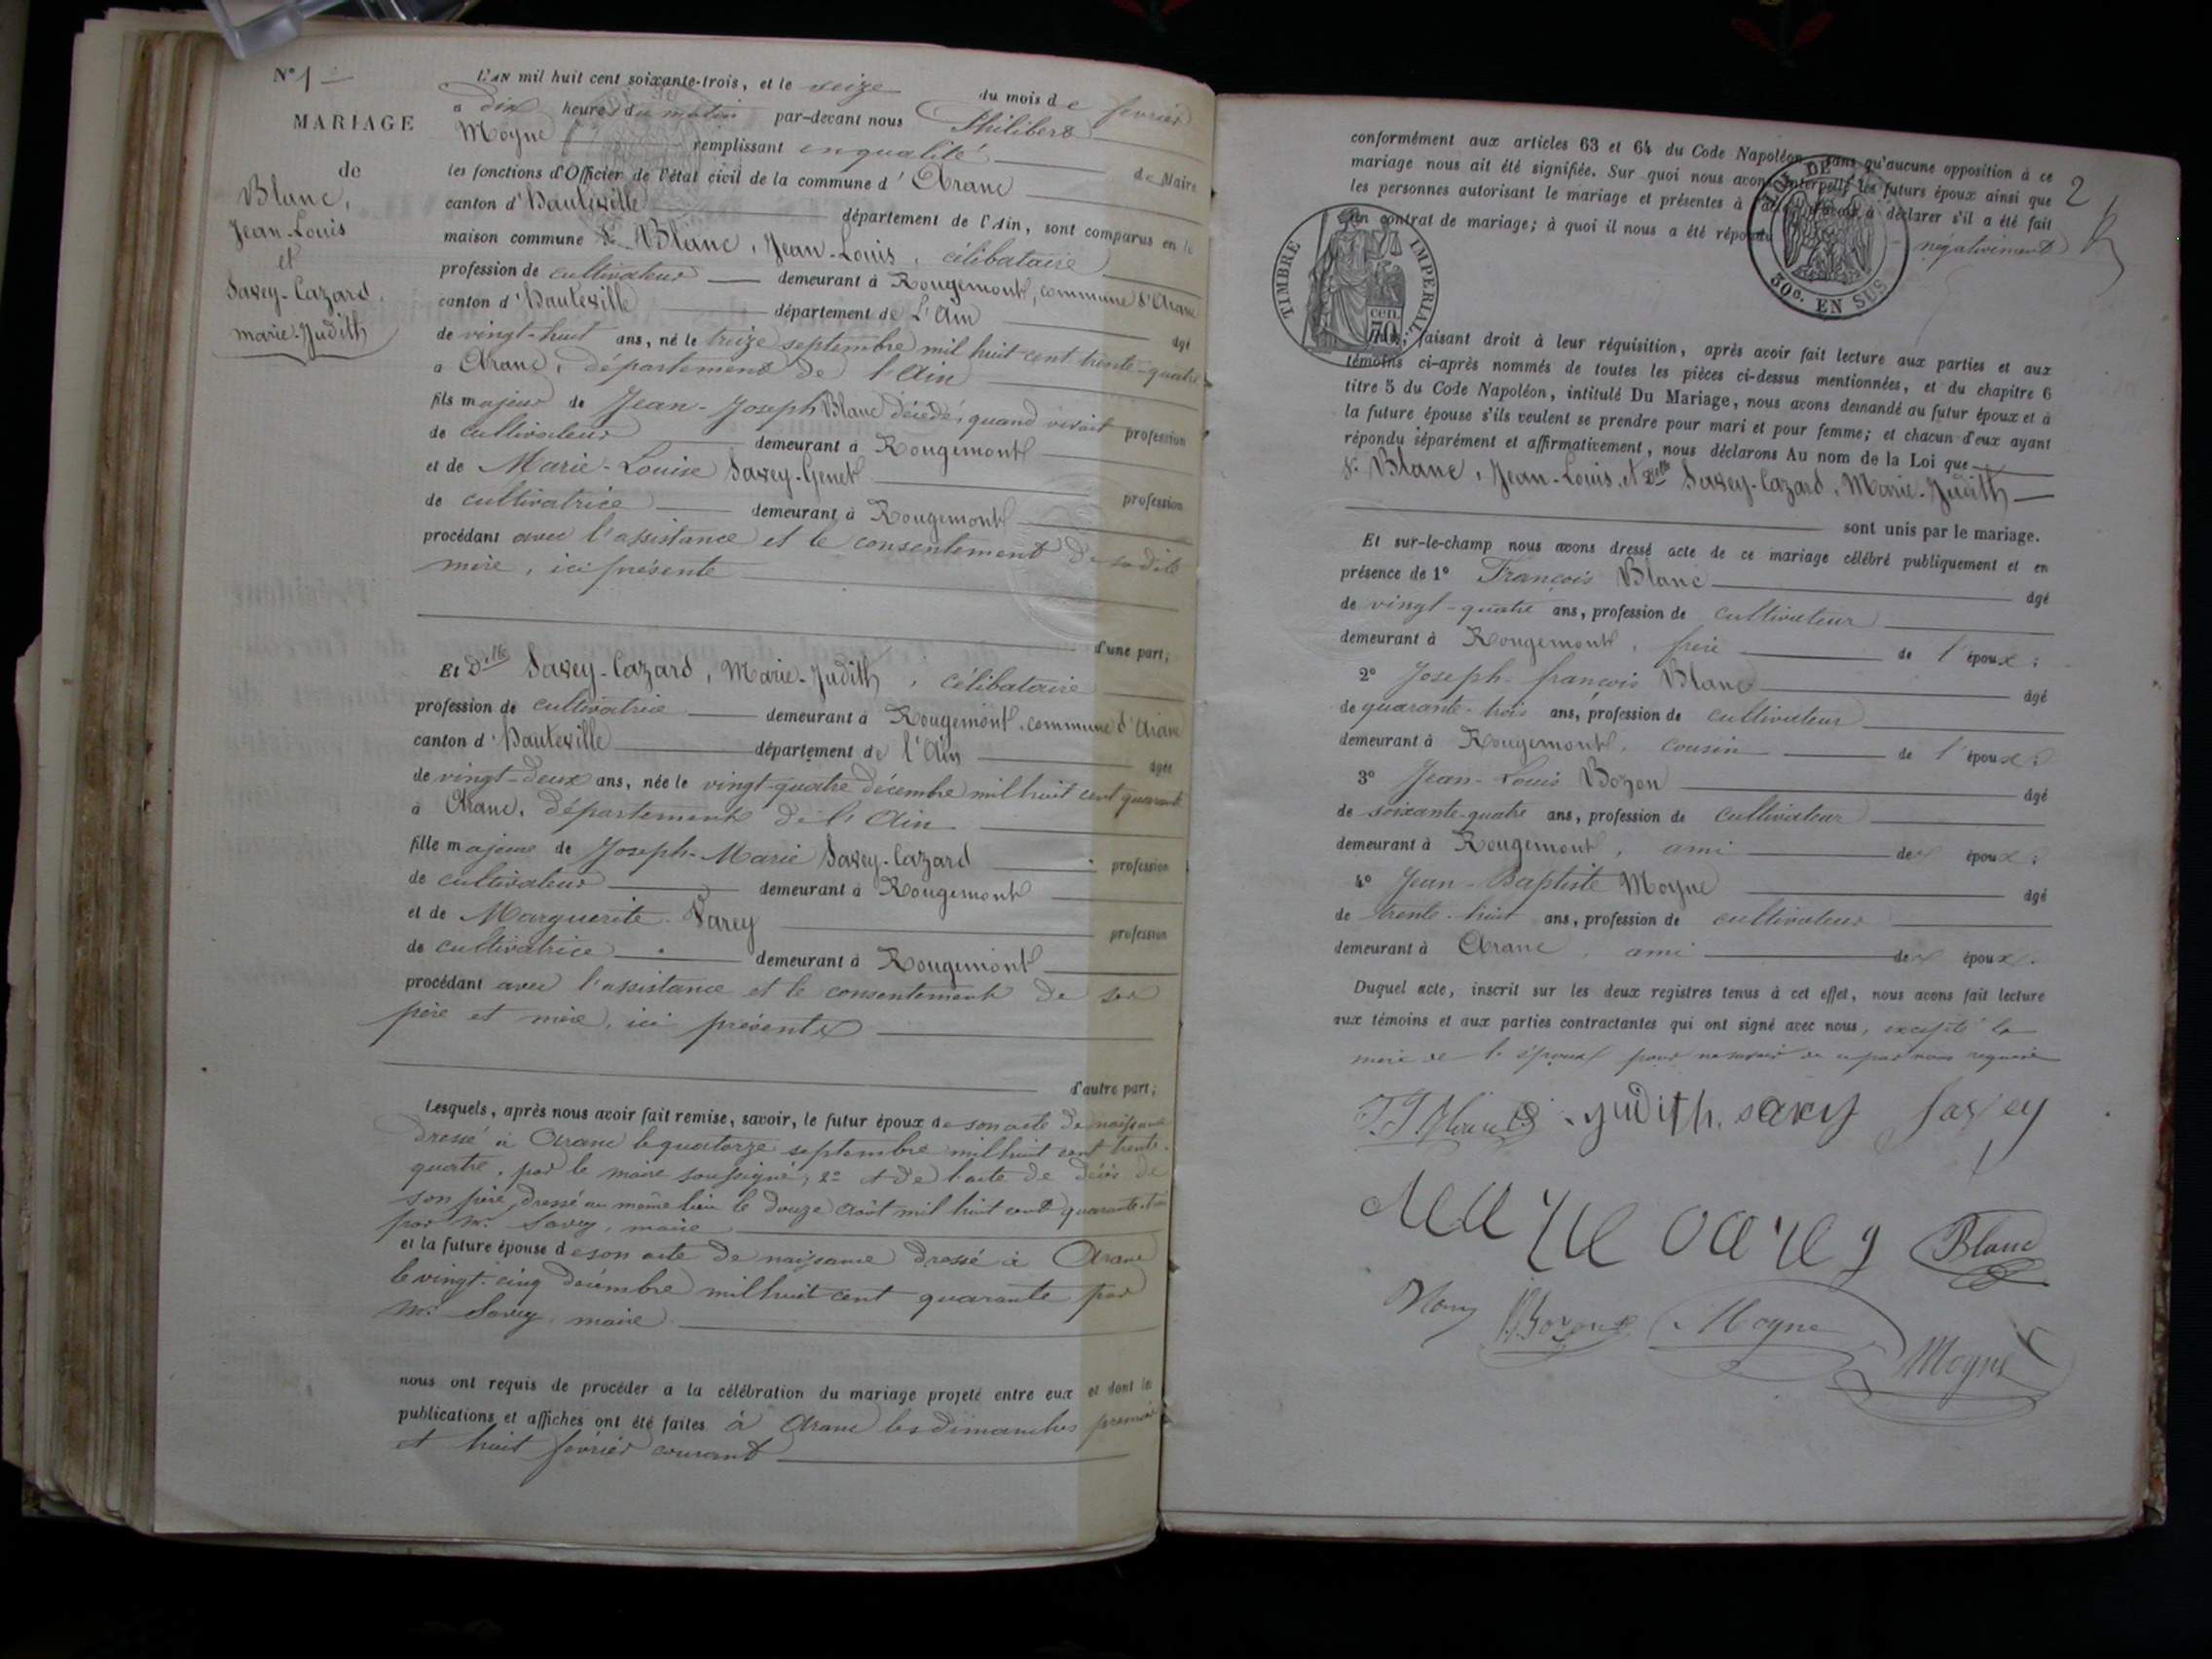 N° 1
MARIAGE
de
Blanc,
Jean-Louis
et
Savey-Cazard,
marie-Judith
L'AN mil huit cent soixante-trois, et le seize du mois de février
à dix heures du matin par-devant nous Philibert
Moyne remplissant en qualité de Maire
les fonctions d'Officier de l'état civil de la commune d'Aranc
canton d'Hauteville département de l'Ain, sont comparus en la
maison commune Sr Blanc, Jean-Louis, célibataire
profession de cultivateur demeurant à Rougemont, commune d'Aranc
canton d'Hauteville département de L'Ain âgé
de vingt-huit ans, né le treize septembre mil huit cent trente-quatre
à Aranc, département de l'Ain
fils majeur de Jean-Joseph Blanc décédé, quand vivait profession
de cultivateur demeurant à Rougemont
et de Marie-Louise Savey-Genet profession
de cultivatrice demeurant à Rougemont
procédant avec l'assistance et le consentement de sadite
mère, ici présente
d'une part;
Et Dlle Savey-Cazard, Marie-Judith, célibataire
profession de cultivatrice demeurant à Rougemont, commune d'Aranc
canton d'Hauteville département de l'Ain âgée
de vingt-deux ans, née le vingt-quatre décembre mil huit cent quarante
à Aranc, département de l'Ain
fille majeure de Joseph-Marie Savey-Cazard profession
de cultivateur demeurant à Rougemont
et de Marguerite Varey profession
de cultivatrice demeurant à Rougemont
procédant avec l'assistance et le consentement de ses
père et mère, ici présents
d'autre part;
Lesquels, après nous avoir fait remise, savoir, le futur époux de son acte de naissance
dressé à Aranc le quatorze septembre mil huit cent trente-
quatre, par le maire soussigné; 2° et de l'acte de décès de
son père, dressé au même lieu le douze août mil huit cent quarante-trois
par Mr Savey, maire
et la future épouse de son acte de naissance dressé à Aranc
le vingt-cinq décembre mil huit cent quarante par
Mr Savey, maire
nous ont requis de procéder à la célébration du mariage projeté entre eux et dont les
publications et affiches ont été faites à Aranc les dimanches premier
et huit février courant
2
conformément aux articles 63 et 64 du Code Napoléon, sans qu'aucune opposition à ce
mariage nous ait été signifiée. Sur quoi nous avons interpellé les futurs époux ainsi que
les personnes autorisant le mariage et présentes à déclarer s'il a été fait
un contrat de mariage; à quoi il nous a été répondu négativement
TIMBRE IMPERIAL
50 cen.
50c. EN SUS
faisant droit à leur réquisition, après avoir fait lecture aux parties et aux
témoins ci-après nommés de toutes les pièces ci-dessus mentionnées, et du chapitre 6
titre 5 du Code Napoléon, intitulé Du Mariage, nous avons demandé au futur époux et à
la future épouse s'ils veulent se prendre pour mari et pour femme; et chacun d'eux ayant
répondu séparément et affirmativement, nous déclarons Au nom de la Loi que
Sr Blanc, Jean-Louis, et Dlle Savey-Cazard, Marie-Judith
sont unis par le mariage.
Et sur-le-champ nous avons dressé acte de ce mariage célébré publiquement et en
présence de 1° François Blanc âgé
de vingt-quatre ans, profession de cultivateur
demeurant à Rougemont, frère de l'époux;
2° Joseph-françois Blanc âgé
de quarante-trois ans, profession de cultivateur
demeurant à Rougemont, cousin de l'époux;
3° Jean-Louis Bozon âgé
de soixante-quatre ans, profession de cultivateur
demeurant à Rougemont, ami des époux;
4° Jean-Baptiste Moyne âgé
de trente-huit ans, profession de cultivateur
demeurant à Aranc, ami des époux.
Duquel acte, inscrit sur les deux registres tenus à cet effet, nous avons fait lecture
aux témoins et aux parties contractantes qui ont signé avec nous, excepté la
mère de l'époux pour ne savoir de ce par nous requise
judith savey Savey
varey Blanc
Moyne
Moyne